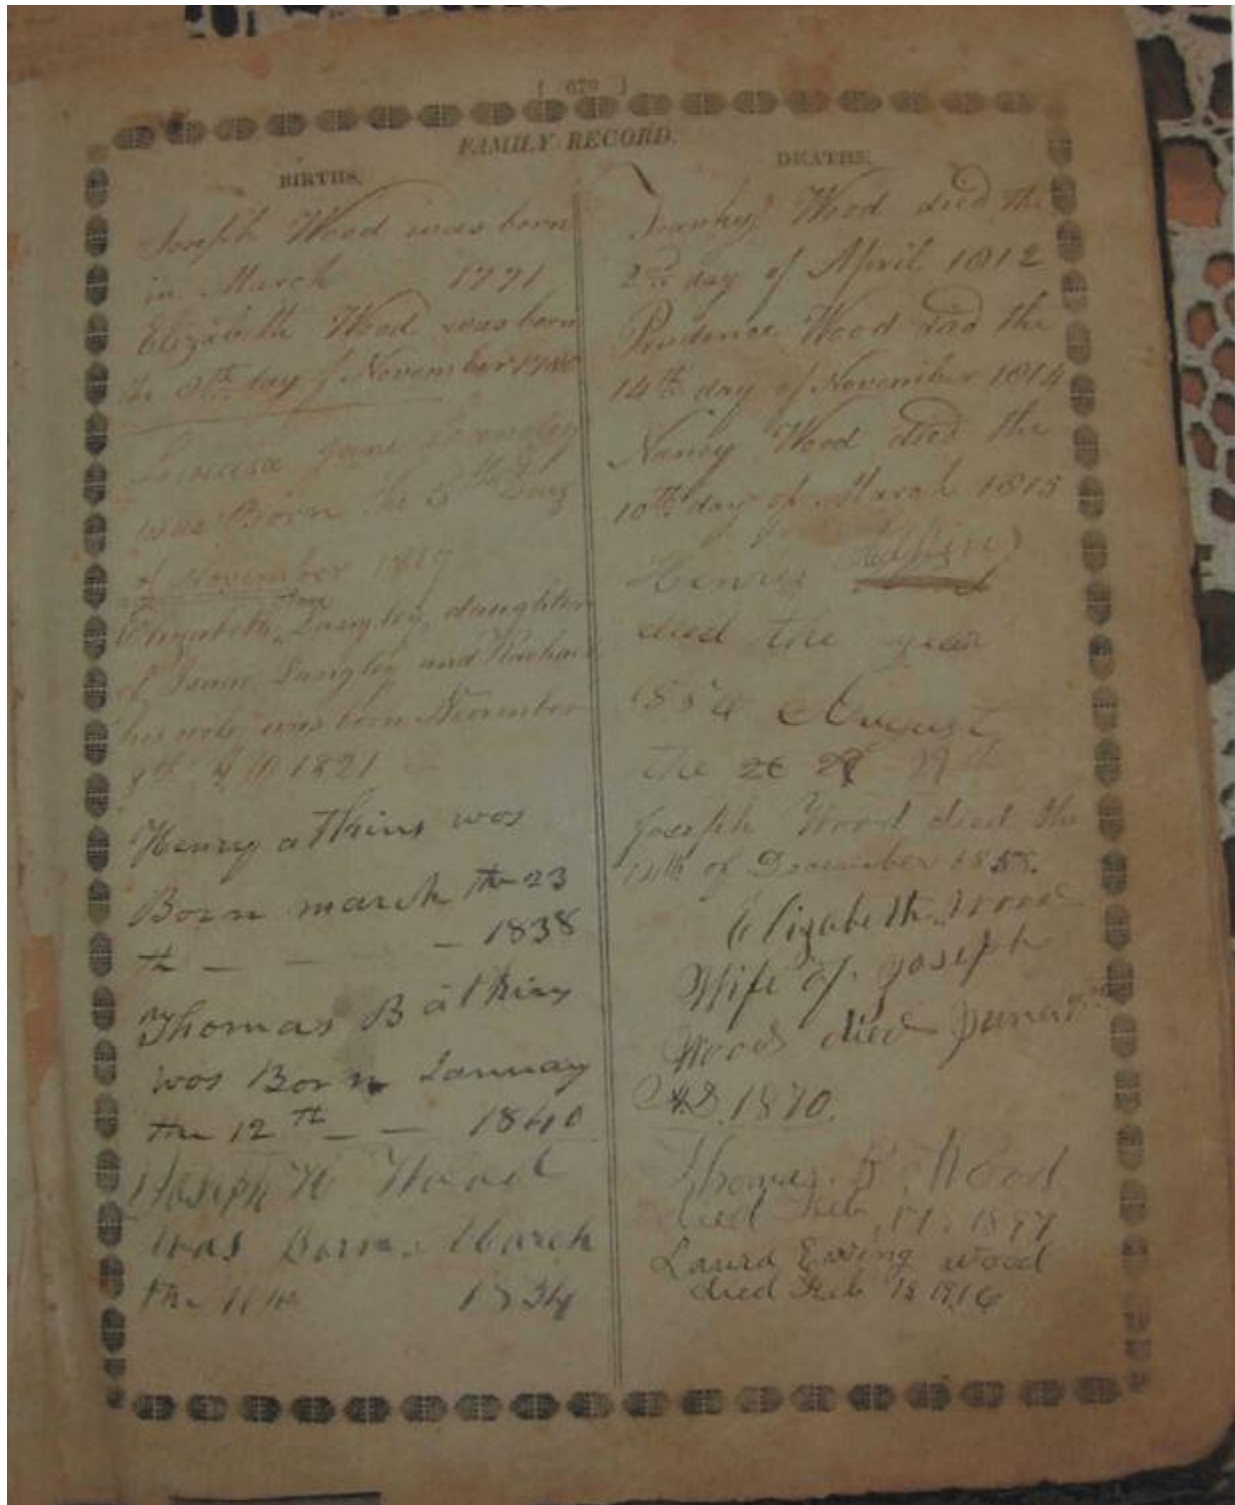 ( 679 )
FAMILY RECORD.
BIRTHS.
Joseph Wood was born
in March 1771
Elizabeth Wood was born
the 8th day of November 1780
Jane Langley
was Born the 5th Day
of November 1817
Elizabeth Langley, daughter
of Isaac Langley and Rachel
his wife was born November
8th A D 1821
Henry atkins wos
Born march the 23
th — — — 1838
Thomas B atkins
wos Born January
the 12 th — — 1840
Joseph W Wood
was Born March
the 11th 1834
DEATHS.
Franky Wood died the
2nd day of April 1812
Prudence Wood died the
14th day of November 1814
Nancy Wood died the
10th day of March 1815
Henry
died the year
1854 August
the 26 29 29th
Joseph Wood died the
14th of December 1855.
Elizabeth Wood
Wife of Joseph
Wood died June
A.D. 1870.
Thomas B Wood
died Feb 17. 1897
Laura Ewing Wood
died Feb 18 1916